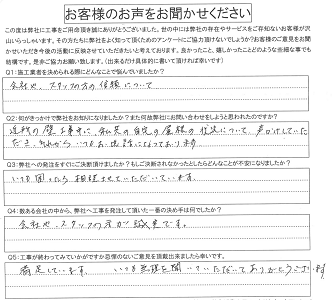 お客様のお声をお聞かせください
この度は弊社に工事をご用命頂き誠にありがとうございました。世の中には弊社の存在やサービスをご存知ないお客様が沢
山いらっしゃいます。その方たちに弊社をよく知って頂くためのアンケートにご協力頂けないでしょうか?お客様のご意見をお聞
かせいただき今後の活動に反映させていただきたいと考えております。良かったこと、嬉しかったことどのような些細な事でも
結構です。是非ご協力お願い致します。(出来るだけ具体的に書いて頂ければ幸いです)
Q1:施工業者を決められる際にどんなことで悩んでいましたか?
会社や、スタッフの方の信頼について
Q2:何がきっかけで弊社をお知りになりましたか?また何故弊社にお問い合わせをしようと思われたのですか?
近所の 工事中に、私共の自宅の屋根の 状況について、声かけしていた
だき、それから いつも お世話になっております
Q3:弊社への発注をすぐにご決断頂けましたか?もしご決断されなかったとしたらどんなことが不安になりましたか?
いつも困ったら相談させていただいています。
Q4:数ある会社の中から、弊社へ工事を発注して頂いた一番の決め手は何でしたか?
会社や、スタッフの方が 誠実です。
Q5:工事が終わってみていかがですか忌憚のないご意見を頂戴出来ましたら幸いです。
満足しています。 いつも無理を聞いていただいてありがとうございます